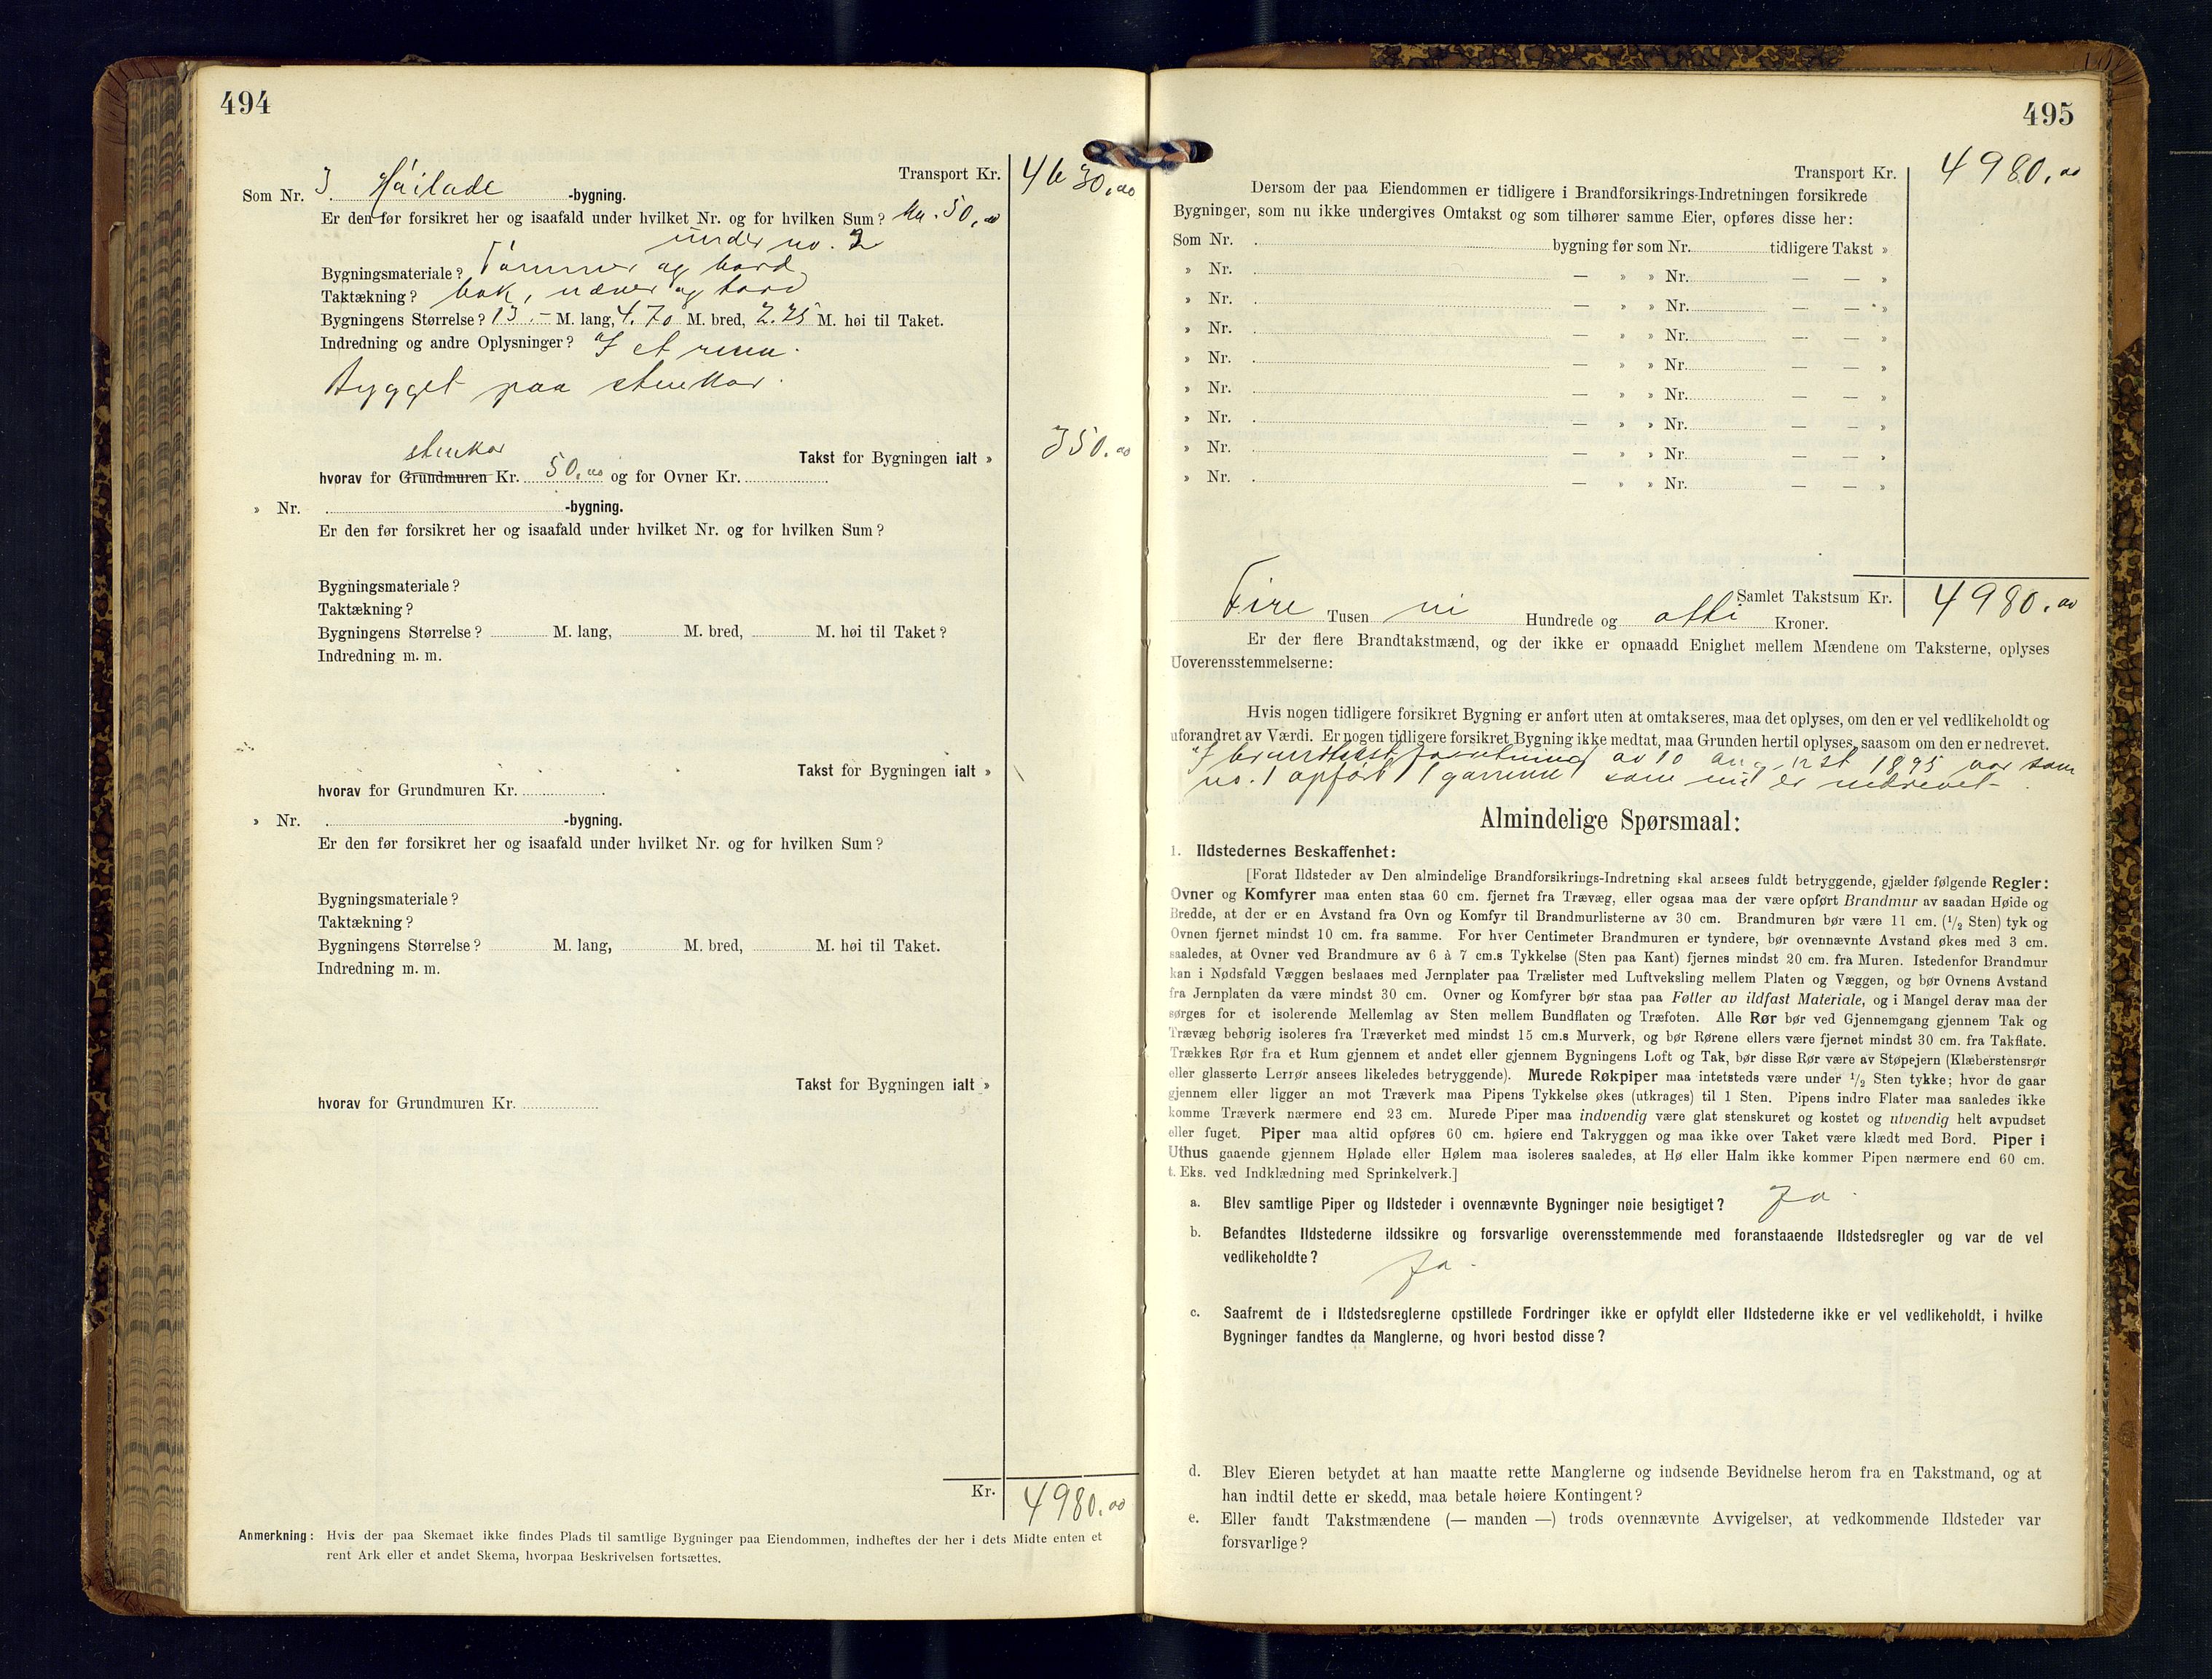 494
Transport Kr. 4630.00
Som Nr. 3 Høilade -bygning.
Er den før forsikret her og isaafald under hvilket Nr. og for hvilken Sum? Kr. 50,00
under no. 2
Bygningsmateriale? Tømmer og bord
Taktækning? bak, næver og bord
Bygningens Størrelse? 13.- M. lang, 4.70 M. bred, 2.25 M. høi til Taket.
Indredning og andre Oplysninger? I et rum.
Bygget paa stenkar.
stenkar
Takst for Bygningen ialt » 350.00
hvorav for Grundmuren Kr. 50.00 og for Ovner Kr.
» Nr. -bygning.
Er den før forsikret her og isaafald under hvilket Nr. og for hvilken Sum?
Bygningsmateriale?
Taktækning?
Bygningens Størrelse? M. lang, M. bred, M. høi til Taket?
Indredning m. m.
Takst for Bygningen ialt »
hvorav for Grundmuren Kr.
» Nr. -bygning.
Er den før forsikret her og isaafald under hvilket Nr. og for hvilken Sum?
Bygningsmateriale?
Taktækning?
Bygningens Størrelse? M. lang, M. bred, M. høi til Taket.
Indredning m. m.
Takst for Bygningen ialt »
hvorav for Grundmuren Kr.
Kr. 4980.00
Anmerkning: Hvis der paa Skemaet ikke findes Plads til samtlige Bygninger paa Eiendommen, indheftes der her i dets Midte enten et
rent Ark eller et andet Skema, hvorpaa Beskrivelsen fortsættes.
495
Transport Kr. 4980.00
Dersom der paa Eiendommen er tidligere i Brandforsikrings-Indretningen forsikrede
Bygninger, som nu ikke undergives Omtakst og som tilhører samme Eier, opføres disse her:
Som Nr. bygning før som Nr. tidligere Takst »
» Nr. — » » Nr. — — »
» Nr. — » » Nr. — — »
» Nr. — » » Nr. — — »
» Nr. — » » Nr. — — »
» Nr. — » » Nr. — — »
» Nr. — » » Nr. — — »
» Nr. — » » Nr. — — »
» Nr. — » » Nr. — — »
Samlet Takstsum Kr. 4980.00
Fire Tusen ni Hundrede og otti Kroner.
Er der flere Brandtakstmænd, og der ikke er opnaadd Enighet mellem Mændene om Taksterne, oplyses
Uoverensstemmelserne:
Hvis nogen tidligere forsikret Bygning er anført uten at omtakseres, maa det oplyses, om den er vel vedlikeholdt og
uforandret av Værdi. Er nogen tidligere forsikret Bygning ikke medtat, maa Grunden hertil oplyses, saasom om den er nedrevet.
I brandtakstforretning av 10 august 1895 var som
no. 1 opført 1 som nu er nedrevet.
Almindelige Spørsmaal:
1. Ildstedernes Beskaffenhet:
[Forat Ildsteder av Den almindelige Brandforsikrings-Indretning skal ansees fuldt betryggende, gjælder følgende Regler:
Ovner og Komfyrer maa enten staa 60 cm. fjernet fra Trævæg, eller ogsaa maa der være opført Brandmur av saadan Høide og
Bredde, at der er en Avstand fra Ovn og Komfyr til Brandmurlisterne av 30 cm. Brandmuren bør være 11 cm. (1/2 Sten) tyk og
Ovnen fjernet mindst 10 cm. fra samme. For hver Centimeter Brandmuren er tyndere, bør ovennævnte Avstand økes med 3 cm.
saaledes, at Ovner ved Brandmure av 6 à 7 cm.s Tykkelse (Sten paa Kant) fjernes mindst 20 cm. fra Muren. Istedenfor Brandmur
kan i Nødsfald Væggen beslaaes med Jernplater paa Trælister med Luftveksling mellem Platen og Væggen, og bør Ovnens Avstand
fra Jernplaten da være mindst 30 cm. Ovner og Komfyrer bør staa paa Føtter av ildfast Materiale, og i Mangel derav maa der
sørges for et isolerende Mellemlag av Sten mellem Bundflaten og Træfoten. Alle Rør bør ved Gjennemgang gjennem Tak og
Trævæg behørig isoleres fra Træverket med mindst 15 cm.s Murverk, og bør Rørene ellers være fjernet mindst 30 cm. fra Takflate.
Trækkes Rør fra et Rum gjennem et andet eller gjennem Bygningens Loft og Tak, bør disse Rør være av Støpejern (Klæberstensrør
eller glasserte Lerrør ansees likeledes betryggende). Murede Røkpiper maa intetsteds være under 1/2 Sten tykke; hvor de gaar
gjennem eller ligger an mot Træverk maa Pipens Tykkelse økes (utkrages) til 1 Sten. Pipens indre Flater maa saaledes ikke
komme Træverk nærmere end 23 cm. Murede Piper maa indvendig være glat stenskuret og kostet og utvendig helt avpudset
eller fuget. Piper maa altid opføres 60 cm. høiere end Takryggen og maa ikke over Taket være klædt med Bord. Piper i
Uthus gaaende gjennem Hølade eller Hølem maa isoleres saaledes, at Hø eller Halm ikke kommer Pipen nærmere end 60 cm.
t. Eks. ved Indklædning med Sprinkelverk.]
a. Blev samtlige Piper og Ildsteder i ovennævnte Bygninger nøie besigtiget? Ja.
b. Befandtes Ildstederne ildssikre og forsvarlige overensstemmende med foranstaaende Ildstedsregler og var de vel
vedlikeholdte? Ja.
c. Saafremt de i Ildstedsreglerne opstillede Fordringer ikke er opfyldt eller Ildstederne ikke er vel vedlikeholdt, i hvilke
Bygninger fandtes da Manglerne, og hvori bestod disse?
d. Blev Eieren betydet at han maatte rette Manglerne og indsende Bevidnelse herom fra en Takstmand, og at
han indtil dette er skedd, maa betale høiere Kontingent?
e. Eller fandt Takstmændene (— manden —) trods ovennævnte Avvigelser, at vedkommende Ildsteder var
forsvarlige?